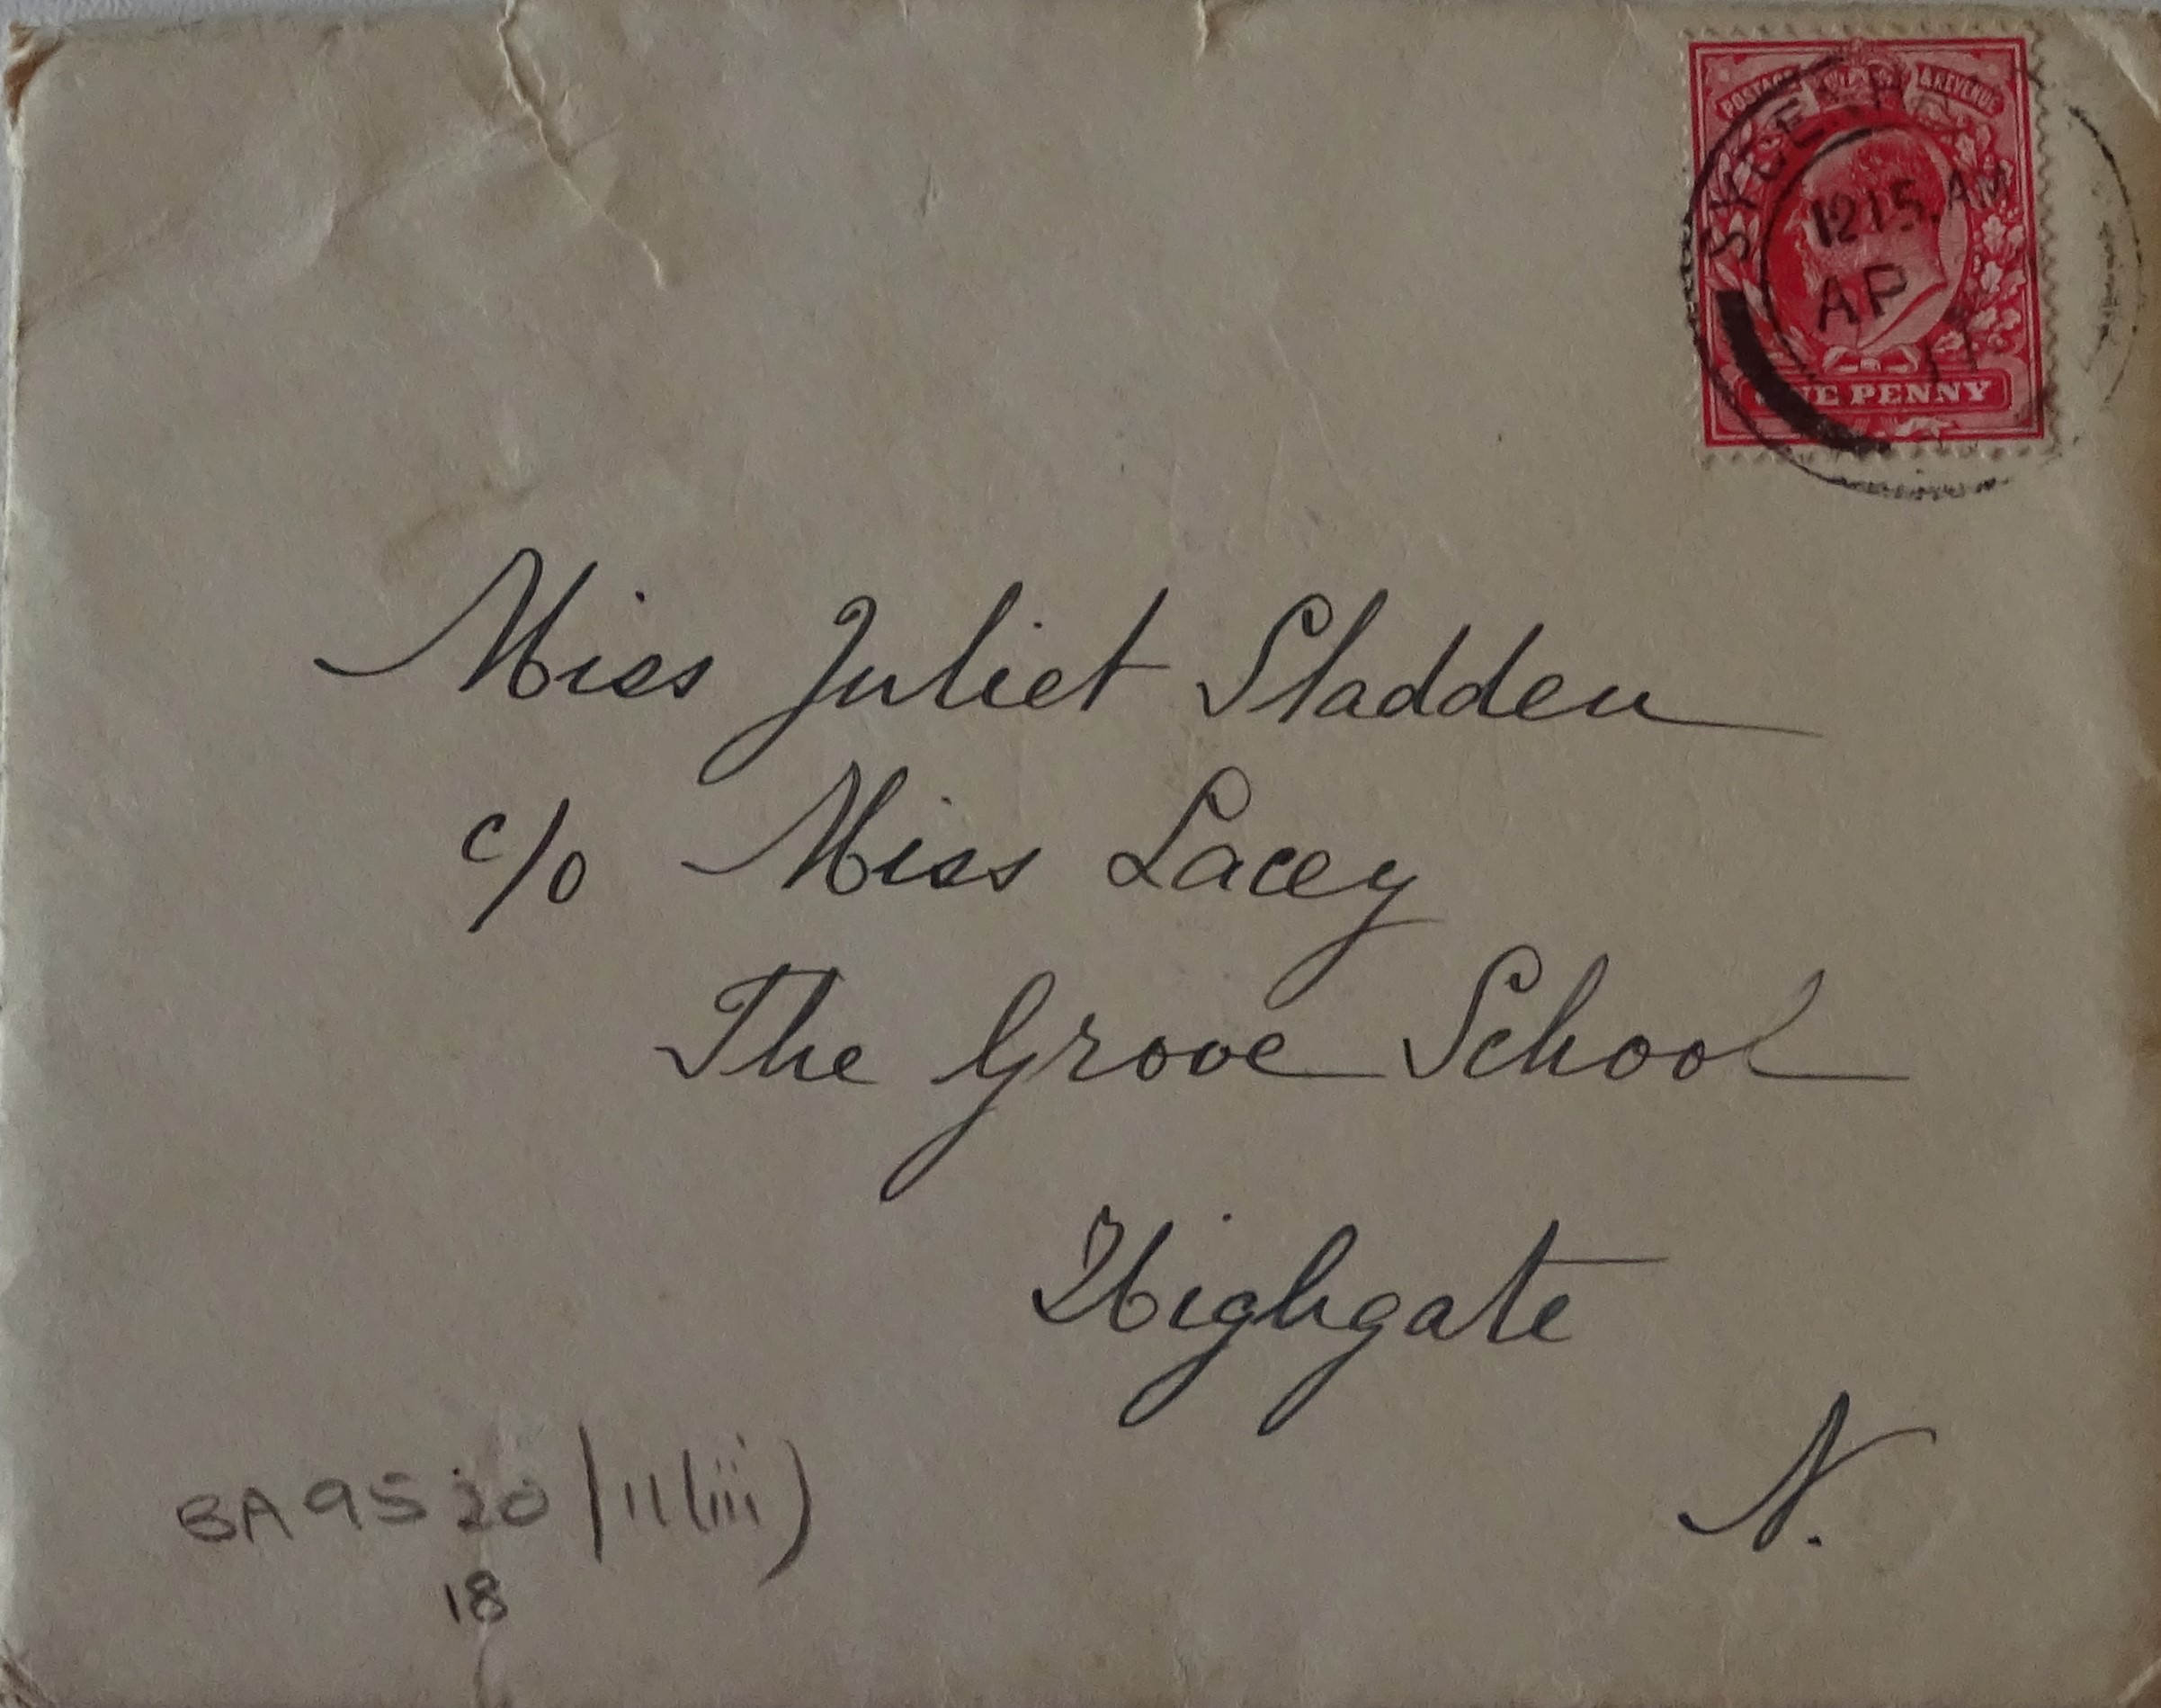 POSTAGE & REVENUE
SYDENHAM
12 15 AM
AP
11
ONE PENNY
Miss Juliet Sladden
c/o Miss Lacey
The Grove School
Highgate
N.
BA 9520/11(iii)
18